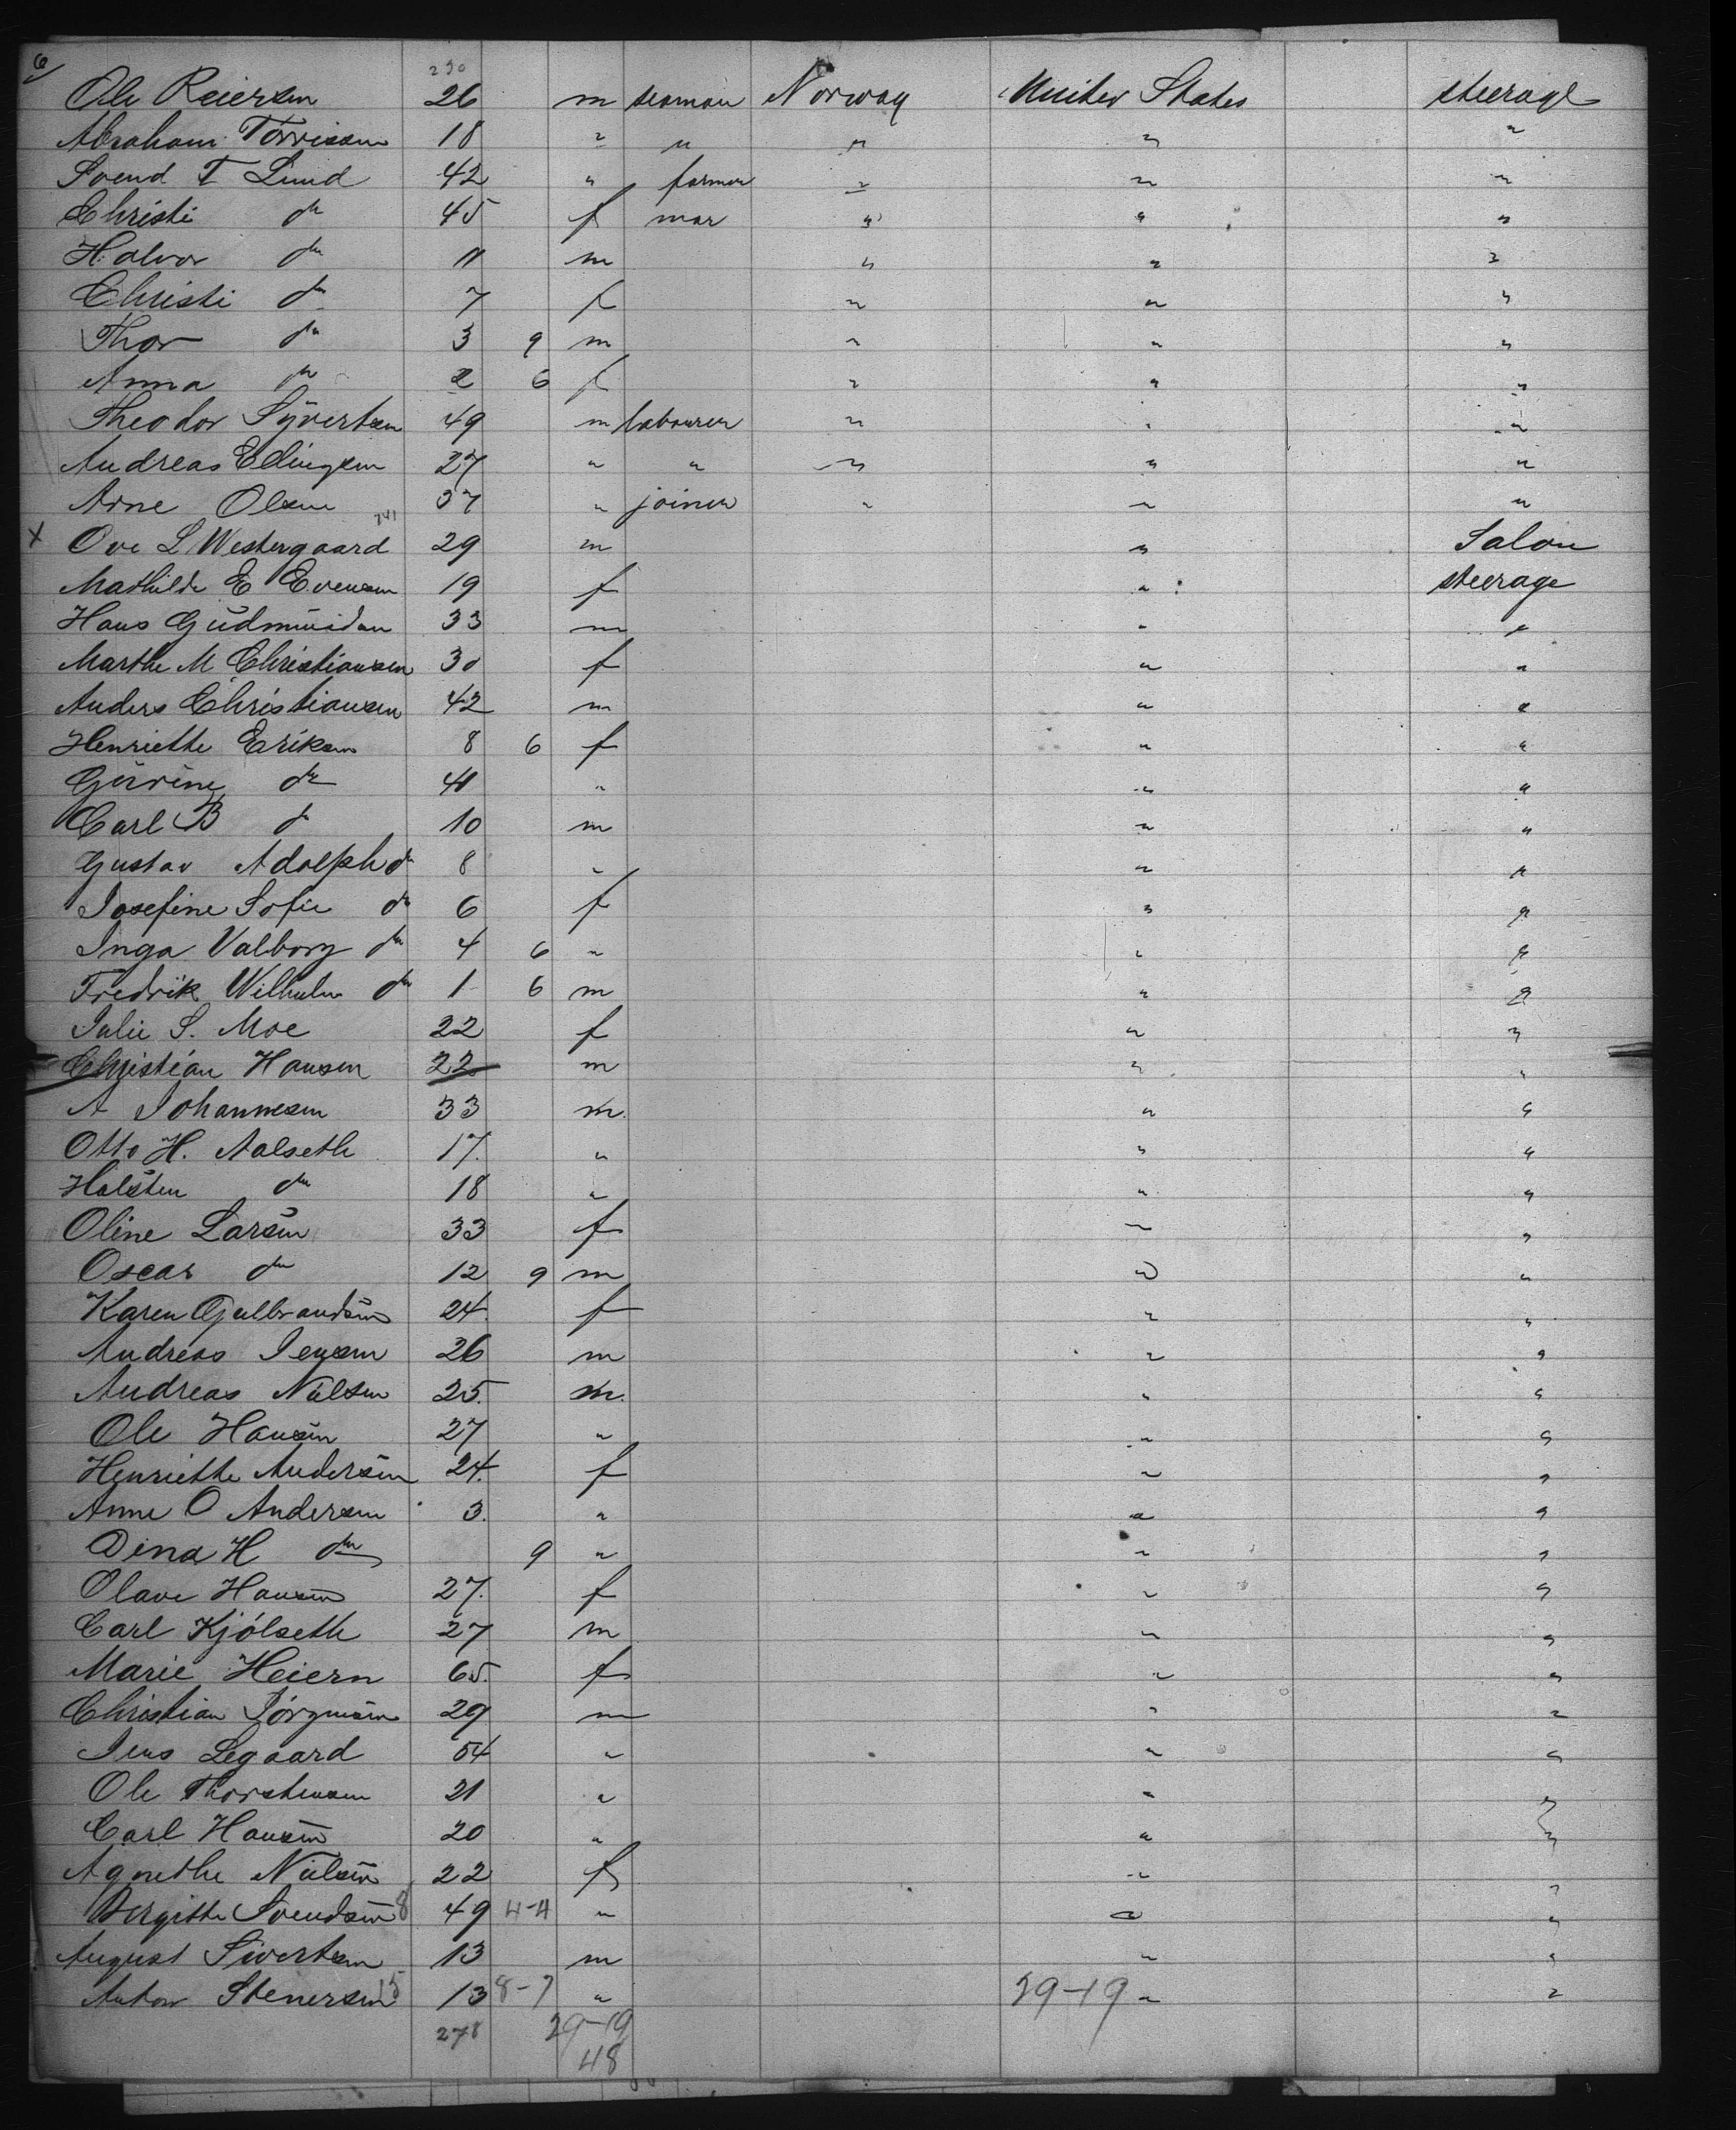 6
230
Ole Reiersen 26 m seaman Norway United States steerage
Abraham Torrissen 18 " " " " "
Svend T Lund 42 " farmer " " "
Christi do 45 f mar " " "
Halvor do 11 m " " "
Christi do 7 f " " "
Thor do 3 9 m " " "
Anna do 2 6 f " " "
Theodor Syvertsen 49 m labourer " " "
Andreas Edingsen 27 " " " " "
Arne Olsen 37 " joiner " " "
x Ove L Westergaard 741 29 m " Salon
Mathilde E Evensen 19 f " steerage
Hans Gudmundsen 33 m " "
Marthe M Christiansen 30 f " "
Anders Christiansen 42 m " "
Henriette Eriksen 8 6 f " "
Gurine do 41 " " "
Carl B do 10 m " "
Gustav Adolph do 8 " " "
Josefine Sofie do 6 f " "
Inga Valborg do 4 6 " " "
Fredrik Wilhelm do 1 6 m " "
Julie S. Moe 22 f " "
Christian Hansen 22 m " "
A Johannesen 33 m. " "
Otto H. Aalseth 17. " " "
Halsten do 18 " " "
Oline Larsen 33 f " "
Oscar do 12 9 m " "
Karen Gulbrandsen 24. f " "
Andreas Jensen 26 m " "
Andreas Nielsen 25. m. " "
Ole Hansen 27 " " "
Henriette Andersen 24. f " "
Anne O Andersen 3. " " "
Dina H do 9 " " "
Olave Hansen 27. f " "
Carl Kjólseth 27 m " "
Marie Heiern 65. f " "
Christian Jörgensen 29 m " "
Jens Legaard 54 " " "
Ole Thorstensen 21 " " "
Carl Hansen 20 " " "
Agnethe Nielsen 22 f " "
Bergitte Svendsen 8 49 4-4 " " "
August Sivertsen 13 m " "
Anton Stenersen 15 13 8-7 " 29-19 " "
278 29-19
48